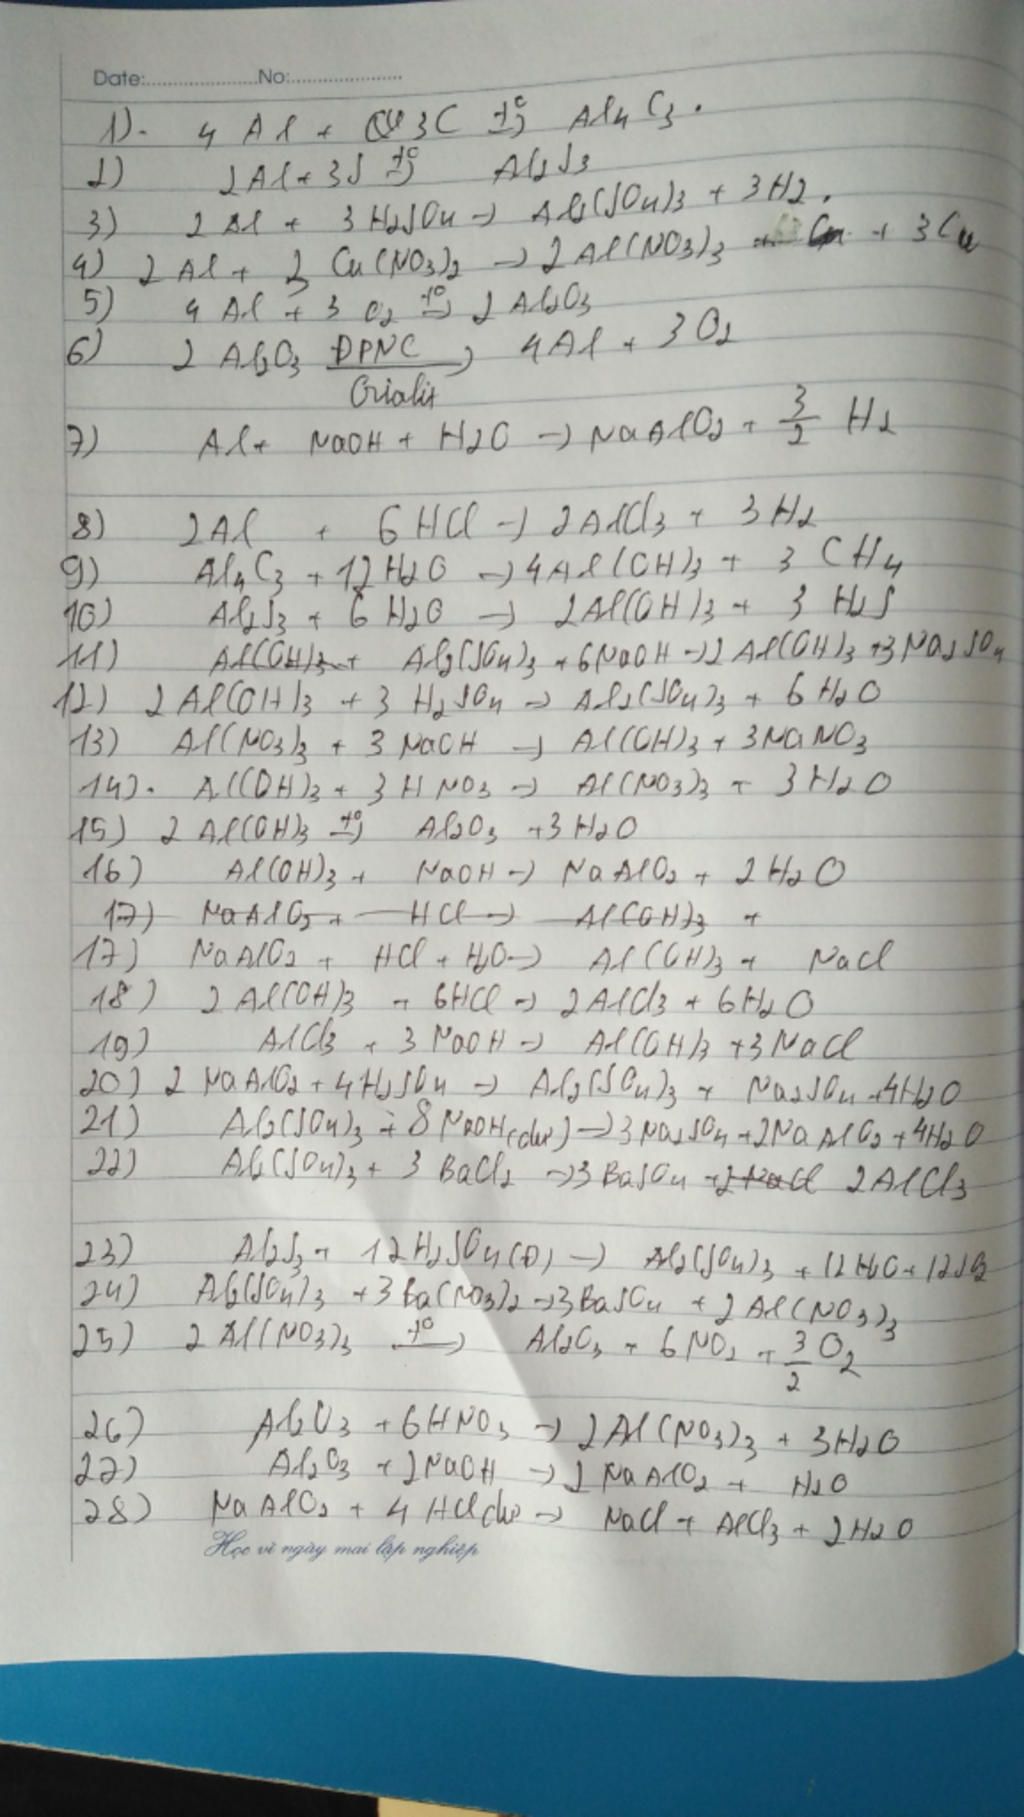 Date:....................No:....................
1). 4 Al + 3C t°→ Al4C3.
2) 2Al + 3S t°→ Al2S3
3) 2 Al + 3 H2SO4 → Al2(SO4)3 + 3H2.
4) 2 Al + 3 Cu(NO3)2 → 2 Al(NO3)3 + 3Cu
5) 4 Al + 3 O2 t°→ 2 Al2O3
6) 2 Al2O3 ĐPNC→ 4Al + 3O2
Crialit
7) Al + NaOH + H2O → NaAlO2 + 3/2 H2
8) 2Al + 6 HCl → 2AlCl3 + 3H2
9) Al4C3 + 12 H2O → 4Al(OH)3 + 3 CH4
10) Al2S3 + 6 H2O → 2Al(OH)3 + 3 H2S
11) Al(OH)3 + Al2(SO4)3 + 6NaOH → 2 Al(OH)3 + 3Na2SO4
12) 2 Al(OH)3 + 3 H2SO4 → Al2(SO4)3 + 6 H2O
13) Al(NO3)3 + 3 NaOH → Al(OH)3 + 3NaNO3
14). Al(OH)3 + 3 HNO3 → Al(NO3)3 + 3H2O
15) 2 Al(OH)3 t°→ Al2O3 + 3 H2O
16) Al(OH)3 + NaOH → NaAlO2 + 2 H2O
17) NaAlO2 + HCl → Al(OH)3 +
17) NaAlO2 + HCl + H2O → Al(OH)3 + NaCl
18) 2 Al(OH)3 + 6HCl → 2AlCl3 + 6H2O
19) AlCl3 + 3 NaOH → Al(OH)3 + 3NaCl
20) 2 NaAlO2 + 4H2SO4 → Al2(SO4)3 + Na2SO4 + 4H2O
21) Al2(SO4)3 + 8 NaOH (dư) → 3Na2SO4 + 2NaAlO2 + 4H2O
22) Al2(SO4)3 + 3 BaCl2 → 3 BaSO4 + 2NaCl 2AlCl3
23) Al2S3 + 12H2SO4 (Đ) → Al2(SO4)3 + 12H2O + 12SO2
24) Al2(SO4)3 + 3Ba(NO3)2 → 3BaSO4 + 2Al(NO3)3
25) 2 Al(NO3)3 t°→ Al2O3 + 6NO2 + 3/2 O2
26) Al2O3 + 6HNO3 → 2Al(NO3)3 + 3H2O
27) Al2O3 + 2NaOH → 2 NaAlO2 + H2O
28) NaAlO2 + 4 HCl dư → NaCl + AlCl3 + 2H2O
Học vì ngày mai lập nghiệp